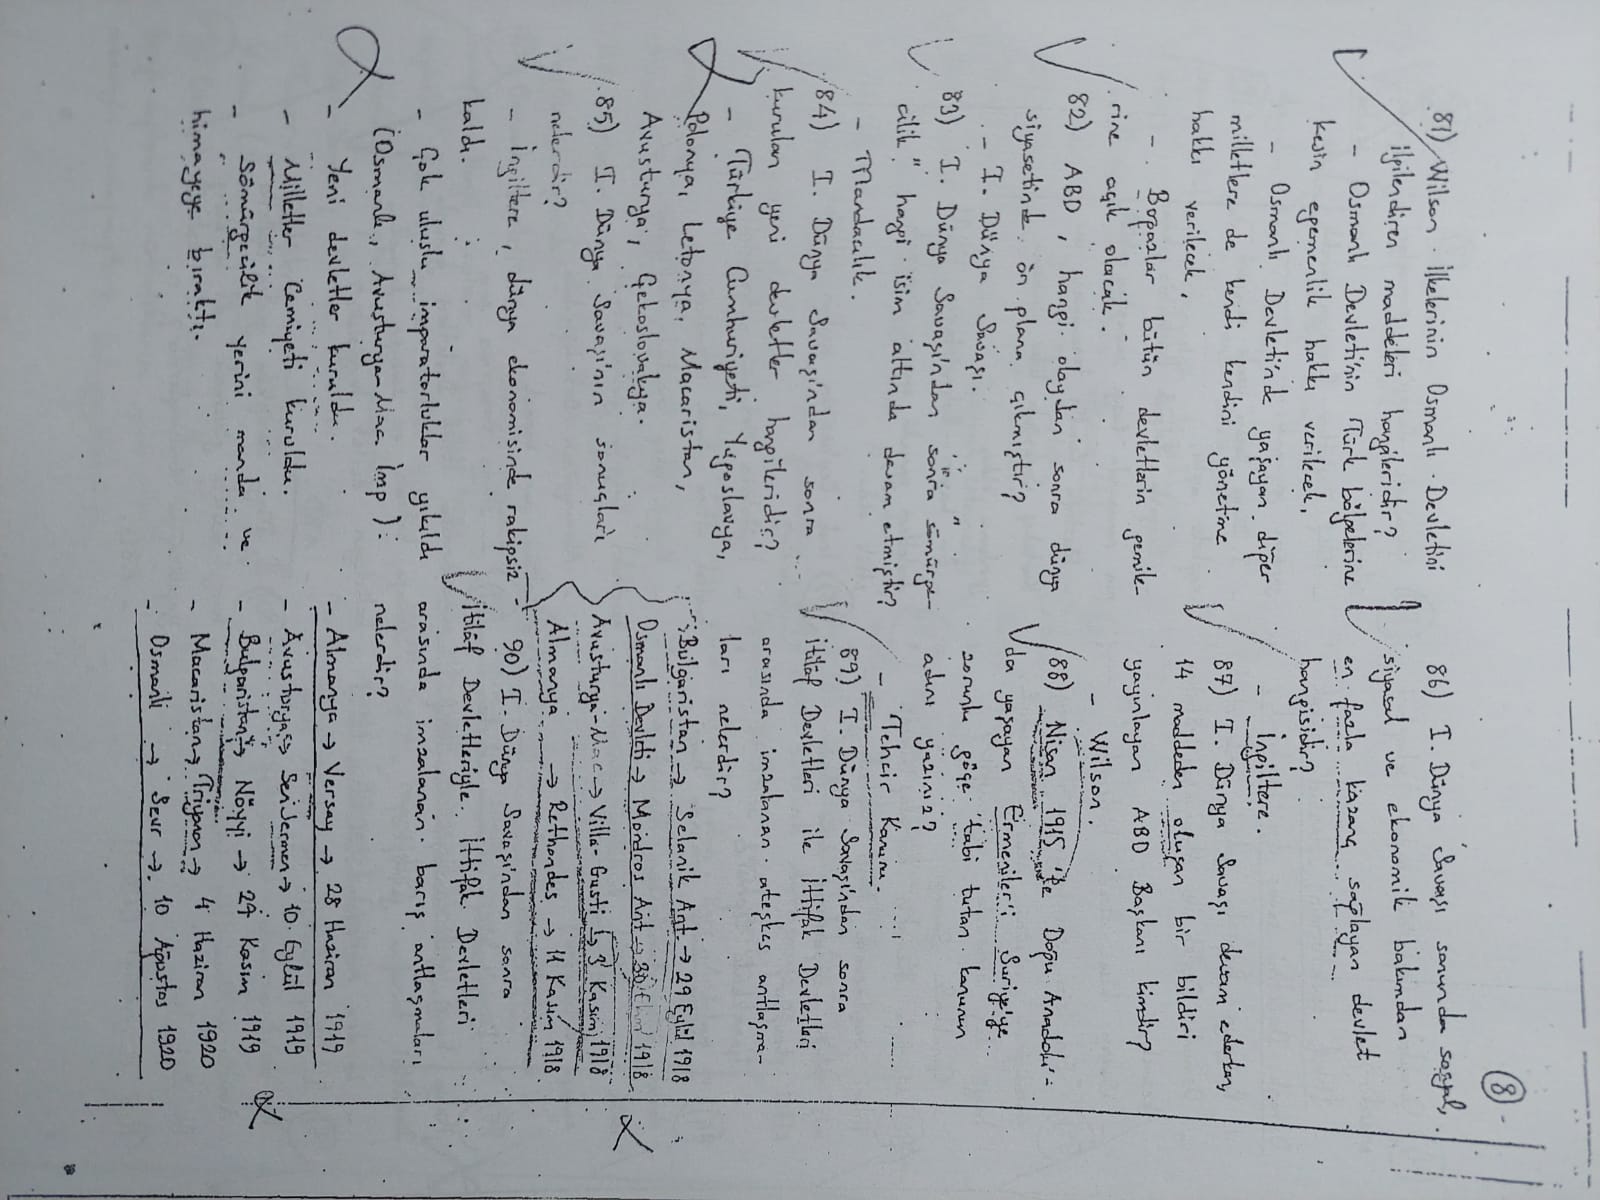 8
81) Wilson İlkelerinin Osmanlı Devletini
ilgilendiren maddeleri hangileridir?
- Osmanlı Devleti'nin Türk bölgelerine
kesin egemenlik hakkı verilecek.
- Osmanlı Devleti'nde yaşayan diğer
milletlere de kendi kendini yönetme
hakkı verilecek.
- Boğazlar bütün devletlerin gemile-
rine açık olacak.
82) ABD, hangi olaydan sonra dünya
siyasetinde ön plana çıkmıştır?
- I. Dünya Savaşı.
83) I. Dünya Savaşı'ndan sonra "sömürge-
cilik" hangi isim altında devam etmiştir?
- Mandacılık.
84) I. Dünya Savaşı'ndan sonra
kurulan yeni devletler hangileridir?
- Türkiye Cumhuriyeti, Yugoslavya,
Polonya, Letonya, Macaristan,
Avusturya, Çekoslovakya.
85) I. Dünya Savaşı'nın sonuçları
nelerdir?
- İngiltere, dünya ekonomisinde rakipsiz
kaldı.
- Çok uluslu imparatorluklar yıkıldı
(Osmanlı, Avusturya-Mac. İmp).
- Yeni devletler kuruldu.
- Milletler Cemiyeti kuruldu.
- Sömürgecilik yerini manda ve
himayeye bıraktı.
86) I. Dünya Savaşı sonunda sosyal,
siyasal ve ekonomik bakımdan
en fazla kazanç sağlayan devlet
hangisidir?
- İngiltere.
87) I. Dünya Savaşı devam ederken,
14 maddeden oluşan bir bildiri
yayınlayan ABD Başkanı kimdir?
- Wilson.
88) Nisan 1915'te Doğu Anadolu'-
da yaşayan Ermeniler'i Suriye'ye
zorunlu göçe tabi tutan kanunun
adını yazınız?
- Tehcir Kanunu.
89) I. Dünya Savaşı'ndan sonra
İtilâf Devletleri ile İttifak Devletleri
arasında imzalanan ateşkes antlaşma-
ları nelerdir?
Bulgaristan → Selanik Ant. → 29 Eylül 1918
Osmanlı Devleti → Mondros Ant → 30 Ekim 1918
Avusturya-Mac → Villa-Gusti → 3 Kasım 1918
Almanya → Rethondes → 11 Kasım 1918
90) I. Dünya Savaşı'ndan sonra
İtilâf Devletleriyle İttifak Devletleri
arasında imzalanan barış antlaşmaları
nelerdir?
- Almanya → Versay → 28 Haziran 1919
- Avusturya → Sen Jermen → 10 Eylül 1919
- Bulgaristan → Nöyyi → 27 Kasım 1919
- Macaristan → Triyanon → 4 Haziran 1920
- Osmanlı → Sevr → 10 Ağustos 1920